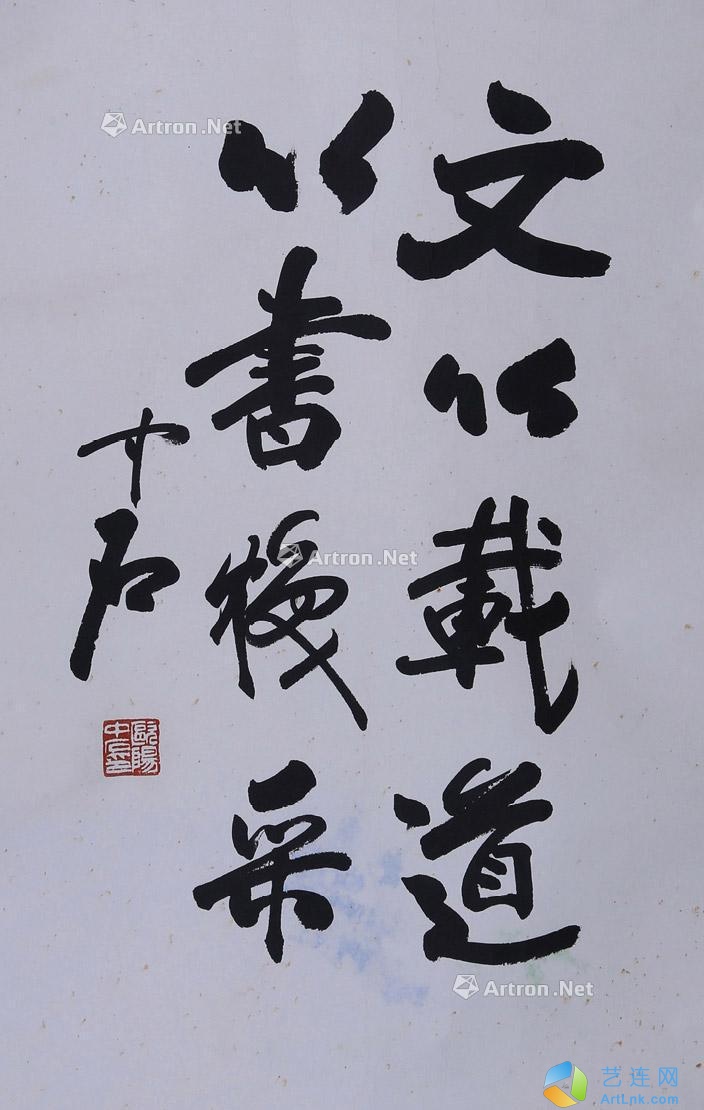 文以載道
以書煥采
中石
歐陽
中石
Artron.Net
Artron.Net
Artron.Net
艺连网
ArtLnk.com